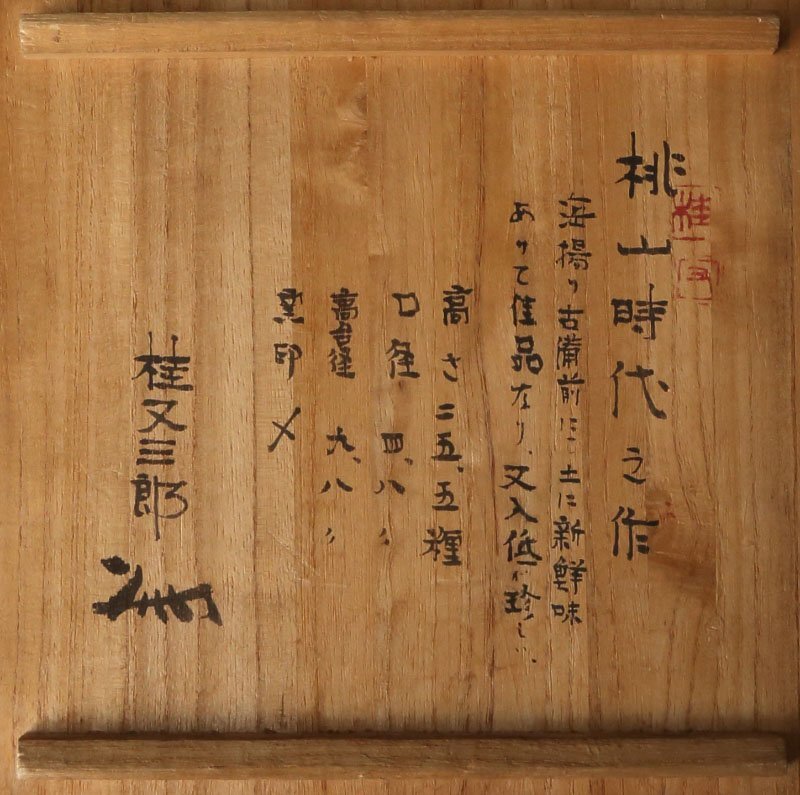 桃山時代之作
海揚り古備前にて土に新鮮味
ありて佳品なり、又入低が珍しい、
高さ二五、五糎
口径 四、八〃
高台径 九、八〃
窯印 〆
桂又三郎